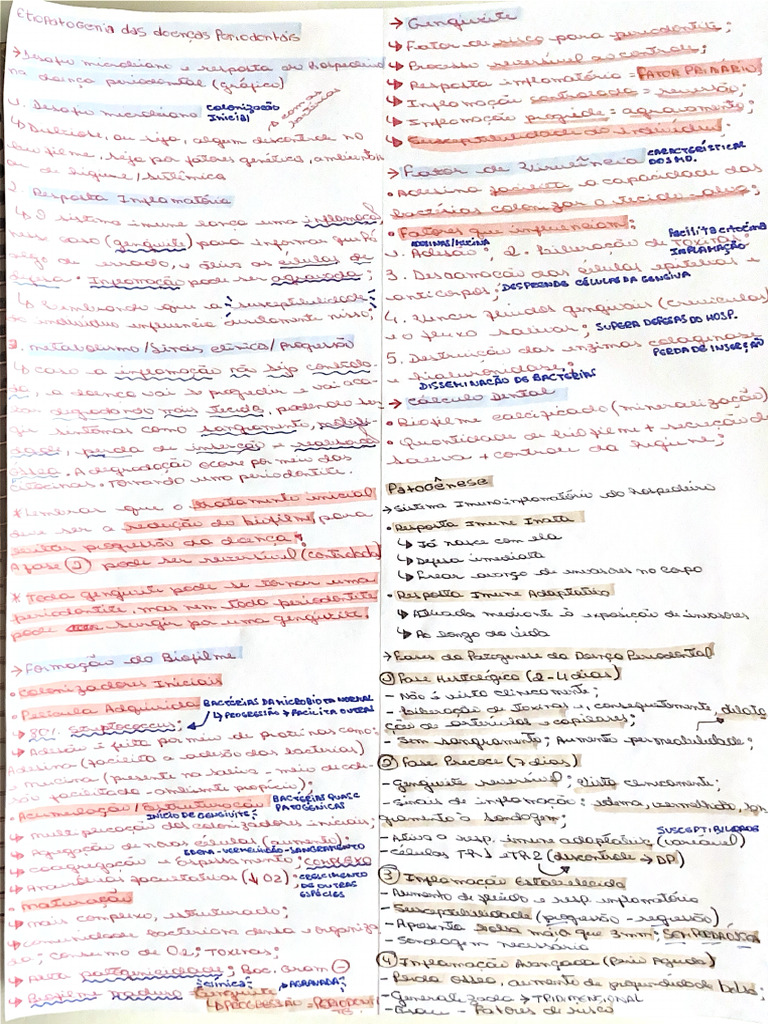 Etiopatogenia das doenças Periodontais
→ Desafio microbiano e resposta do hospedeiro
na doença periodontal (gráfico)
1. Desafio microbiano COLONIZAÇÃO INICIAL
↳ Disbiose, ou seja, algum descontrole no
biofilme, seja por fatores genéticos, ambientais
ou de higiene/sistêmica
2. Resposta Inflamatória
↳ O sistema imune lança uma inflamação
nesse caso (gengivite) para informar que há
algo de errado, e ativa as células de
defesa. Inflamação pode ser aguda;
↳ Lembrando que a susceptibilidade
do indivíduo influencia diretamente nisso;
3. metabolismo/Sinais clínico/Progressão
↳ caso a inflamação não seja controla-
da, a doença vai progredir e vai aca-
bar degradando mais tecido, podendo sur-
gir sintomas como sangramento,
perda de inserção e reabsorção
óssea. A degradação ocorre por meio das
citocinas. Tornando uma periodontite.
* Lembrar que o tratamento inicial
deve ser a redução do biofilme, para
evitar progressão da doença;
A fase ② pode ser reversível (controlada)
* Toda gengivite pode se tornar uma
periodontite, mas nem toda periodontite
pode surgir por uma gengivite.
→ Formação do Biofilme
• Colonizadores Iniciais
• Película Adquirida BACTÉRIAS DA MICROBIOTA NORMAL
↳ PROGRESSÃO → FACILITA OUTRAS
↳ 80% Streptococcus;
↳ Adesão é feita por meio de proteínas como:
Adesina (facilita a adesão das bactérias)
e mucina (presente na saliva - meio de ade-
são facilitado - ambiente propício);
• Acumulação/Estruturação BACTÉRIAS QUASE PATOGÊNICAS
INÍCIO DE GENGIVITE;
↳ multiplicação dos colonizadores iniciais;
↳ agregação de novas células (aumento);
EDEMA - VERMELHIDÃO - SANGRAMENTO
↳ coagregação e Espessamento; COMPLEXO
↳ Anaeróbios facultativos (↓ O2) • CRESCIMENTO DE OUTRAS ESPÉCIES
maturação
↳ mais complexo, estruturado;
↳ comunidade bacteriana densa e organiza-
da; consumo de O2; Toxinas;
↳ Alta patogenicidade; Bac. Gram ⊖
↳ Biofilme maduro = "clínica" Gengivite AGRAVADA;
↳ PROGRESSÃO = PERIODONTITE
→ Gengivite
↳ Fator de risco para periodontite;
↳ Processo reversível ao controle;
↳ Resposta inflamatória = FATOR PRIMÁRIO;
↳ Inflamação controlada = reversão;
↳ Inflamação progride = agravamento;
↳ Susceptibilidade do indivíduo;
→ Fator de Virulência CARACTERÍSTICAS DOS MO.
• Adesina facilita a capacidade das
bactérias colonizar o tecido alvo;
• Fatores que influenciam:
ADESINAS/MUCINA
1. Adesão; 2. Liberação de TOXINAS; Facilita citocina INFLAMAÇÃO
3. Descamação das células epiteliais e
anticorpos; DESPRENDE CÉLULAS DA GENGIVA
4. Vencer fluídos gengivais (crevicular)
e o fluxo salivar; SUPERA DEFESAS DO HOSP.
5. Destruição das enzimas colagenase PERDA DE INSERÇÃO
e hialuronidase;
DISSEMINAÇÃO DE BACTÉRIAS
→ Cálculo Dental
• Biofilme calcificado (mineralização)
• Quantidade de biofilme + secreção da
saliva + controle da higiene;
Patogênese
→ Sistema Imunoinflamatório do hospedeiro
• Resposta Imune Inata
↳ Já nasce com ela
↳ Defesa imediata
↳ avanço de invasores no corpo
• Resposta Imune Adaptativa
↳ Ativada mediante à exposição de invasores
↳ Ao longo da vida
→ Fases da Patogênese da Doença Periodontal
① Fase Histológica (2-4 dias)
- Não é visto clinicamente;
- Liberação de toxinas e, consequentemente, dilata-
ção de arteríolas e capilares;
- Sem sangramento; Aumento permeabilidade;
② Fase Precoce (7 dias)
- Gengivite reversível; Visto clinicamente;
- Sinais de inflamação: edema, vermelhidão, san-
gramento à sondagem;
- Ativa a resp. imune adaptativa (variável) SUSCEPTIBILIDADE
- células TH1 e TH2 (descontrole → DP)
③ Inflamação Estabelecida
- Aumento de fluído e resp. inflamatória
- Susceptibilidade (progressão - regressão)
- Apresenta bolsa maior que 3mm; SEM PERDA ÓSSEA
- Sondagem necessária
④ Inflamação Avançada (Perio Aguda)
- Perda óssea, aumento de profundidade bolsa;
- Generalizada → TRIDIMENSIONAL
- Grau - Fatores de risco